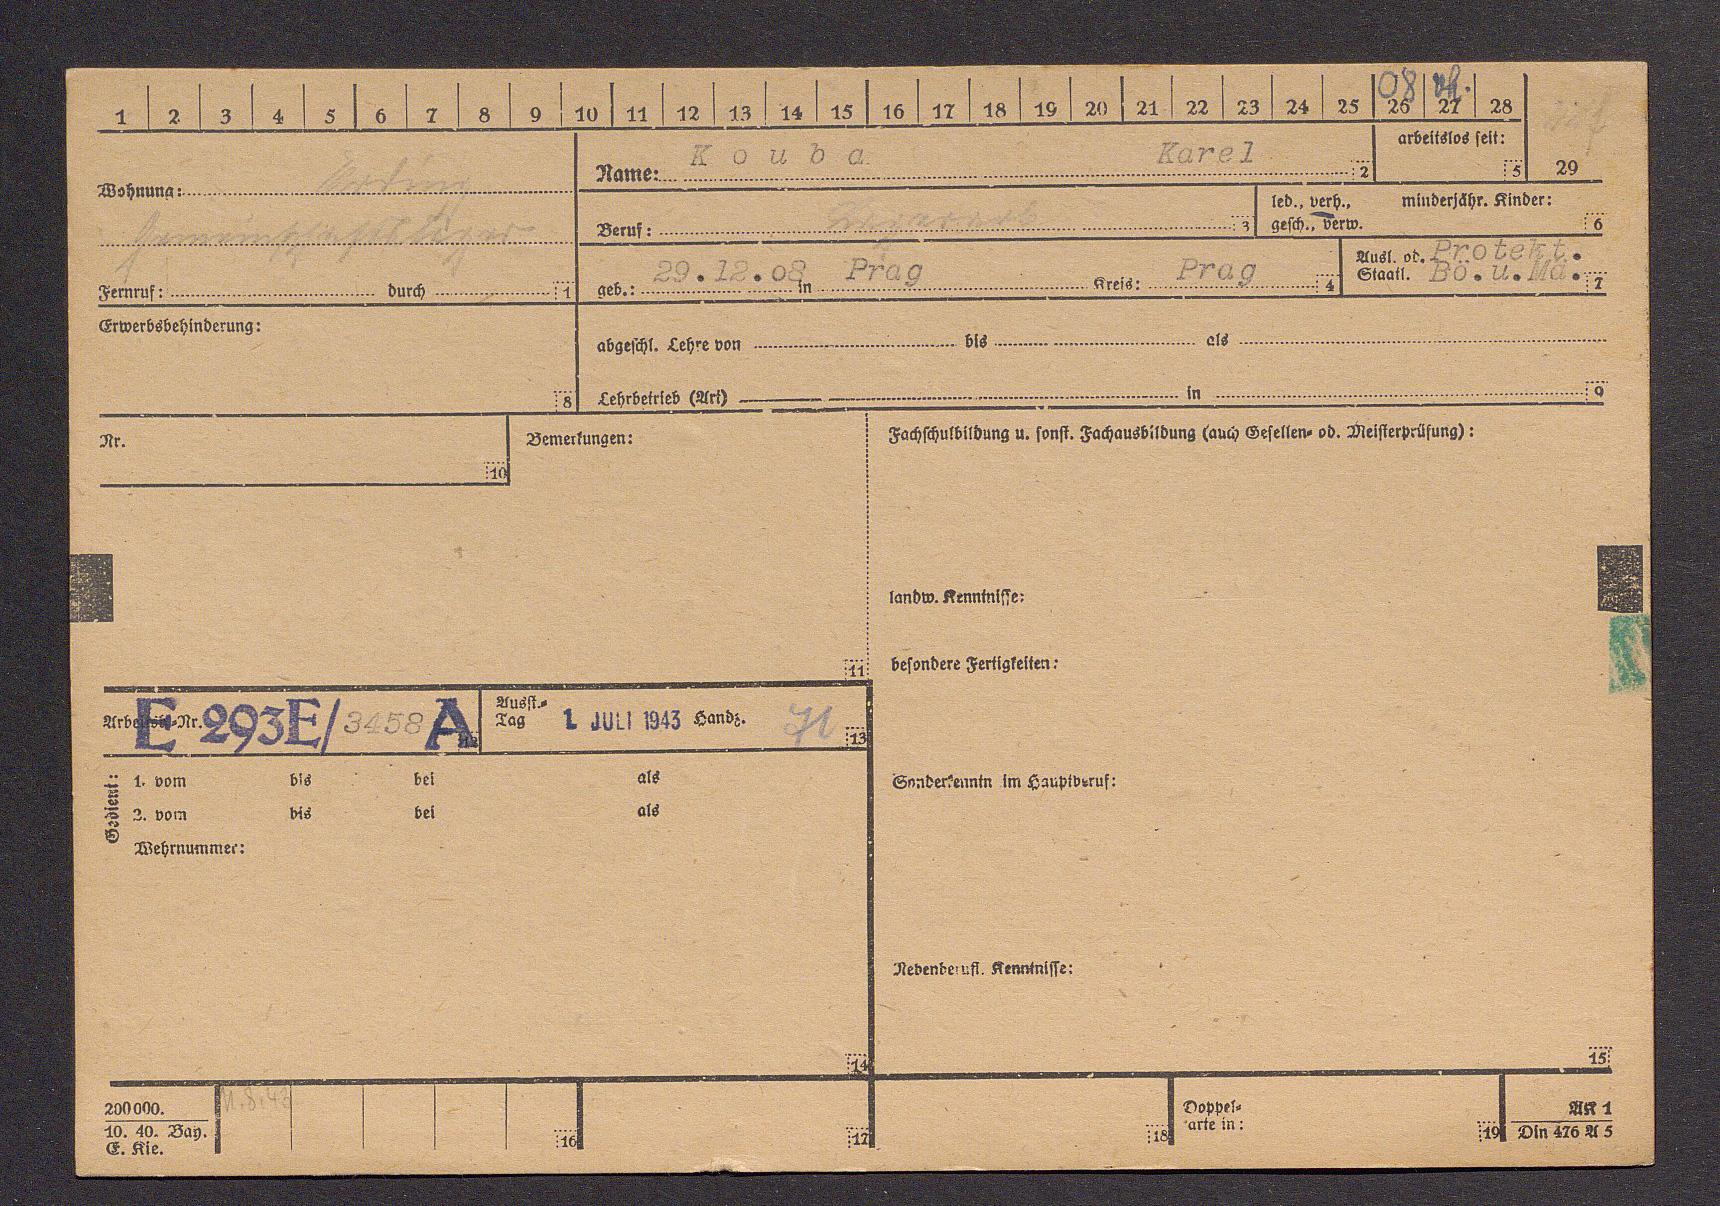 08 vh.
1 2 3 4 5 6 7 8 9 10 11 12 13 14 15 16 17 18 19 20 21 22 23 24 25 26 27 28
arbeitslos seit:
5 29
Name: Kouba Karel 2
Wohnung: Erding
Gemeinschaftslager
Beruf: 3
led., verh., minderjähr. Kinder:
gesch., verw. 6
geb.: 29.12.08 in Prag Kreis: Prag 4
Ausl. od. Protekt.
Staatl. Bö.u.Mä. 7
Fernruf: durch 1
Erwerbsbehinderung:
8
abgeschl. Lehre von bis als
Lehrbetrieb (Art) in 9
Nr.
10
Bemerkungen:
11
Fachschulbildung u. sonst. Fachausbildung (auch Gesellen- od. Meisterprüfung):
landw. Kenntnisse:
besondere Fertigkeiten:
Arbeitsb.-Nr. E 293E/3458 A 12
Ausst.-
Tag 1. JULI 1943 Handz. 13
Gedient:
1. vom bis bei als
2. vom bis bei als
Wehrnummer:
14
Sonderkenntn im Hauptberuf:
Nebenberufl. Kenntnisse:
15
200000.
10. 40. Bay.
E. Kie.
11.8.43
16 17 18
Doppel-
arte in: 19
AK 1
Din 476 A 5